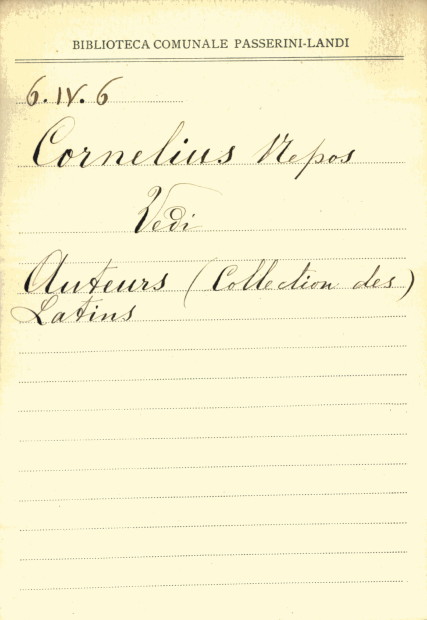 BIBLIOTECA COMUNALE PASSERINI-LANDI
6.IV.6
Cornelius Nepos
Vedi
Auteurs (Collection des)
Latins